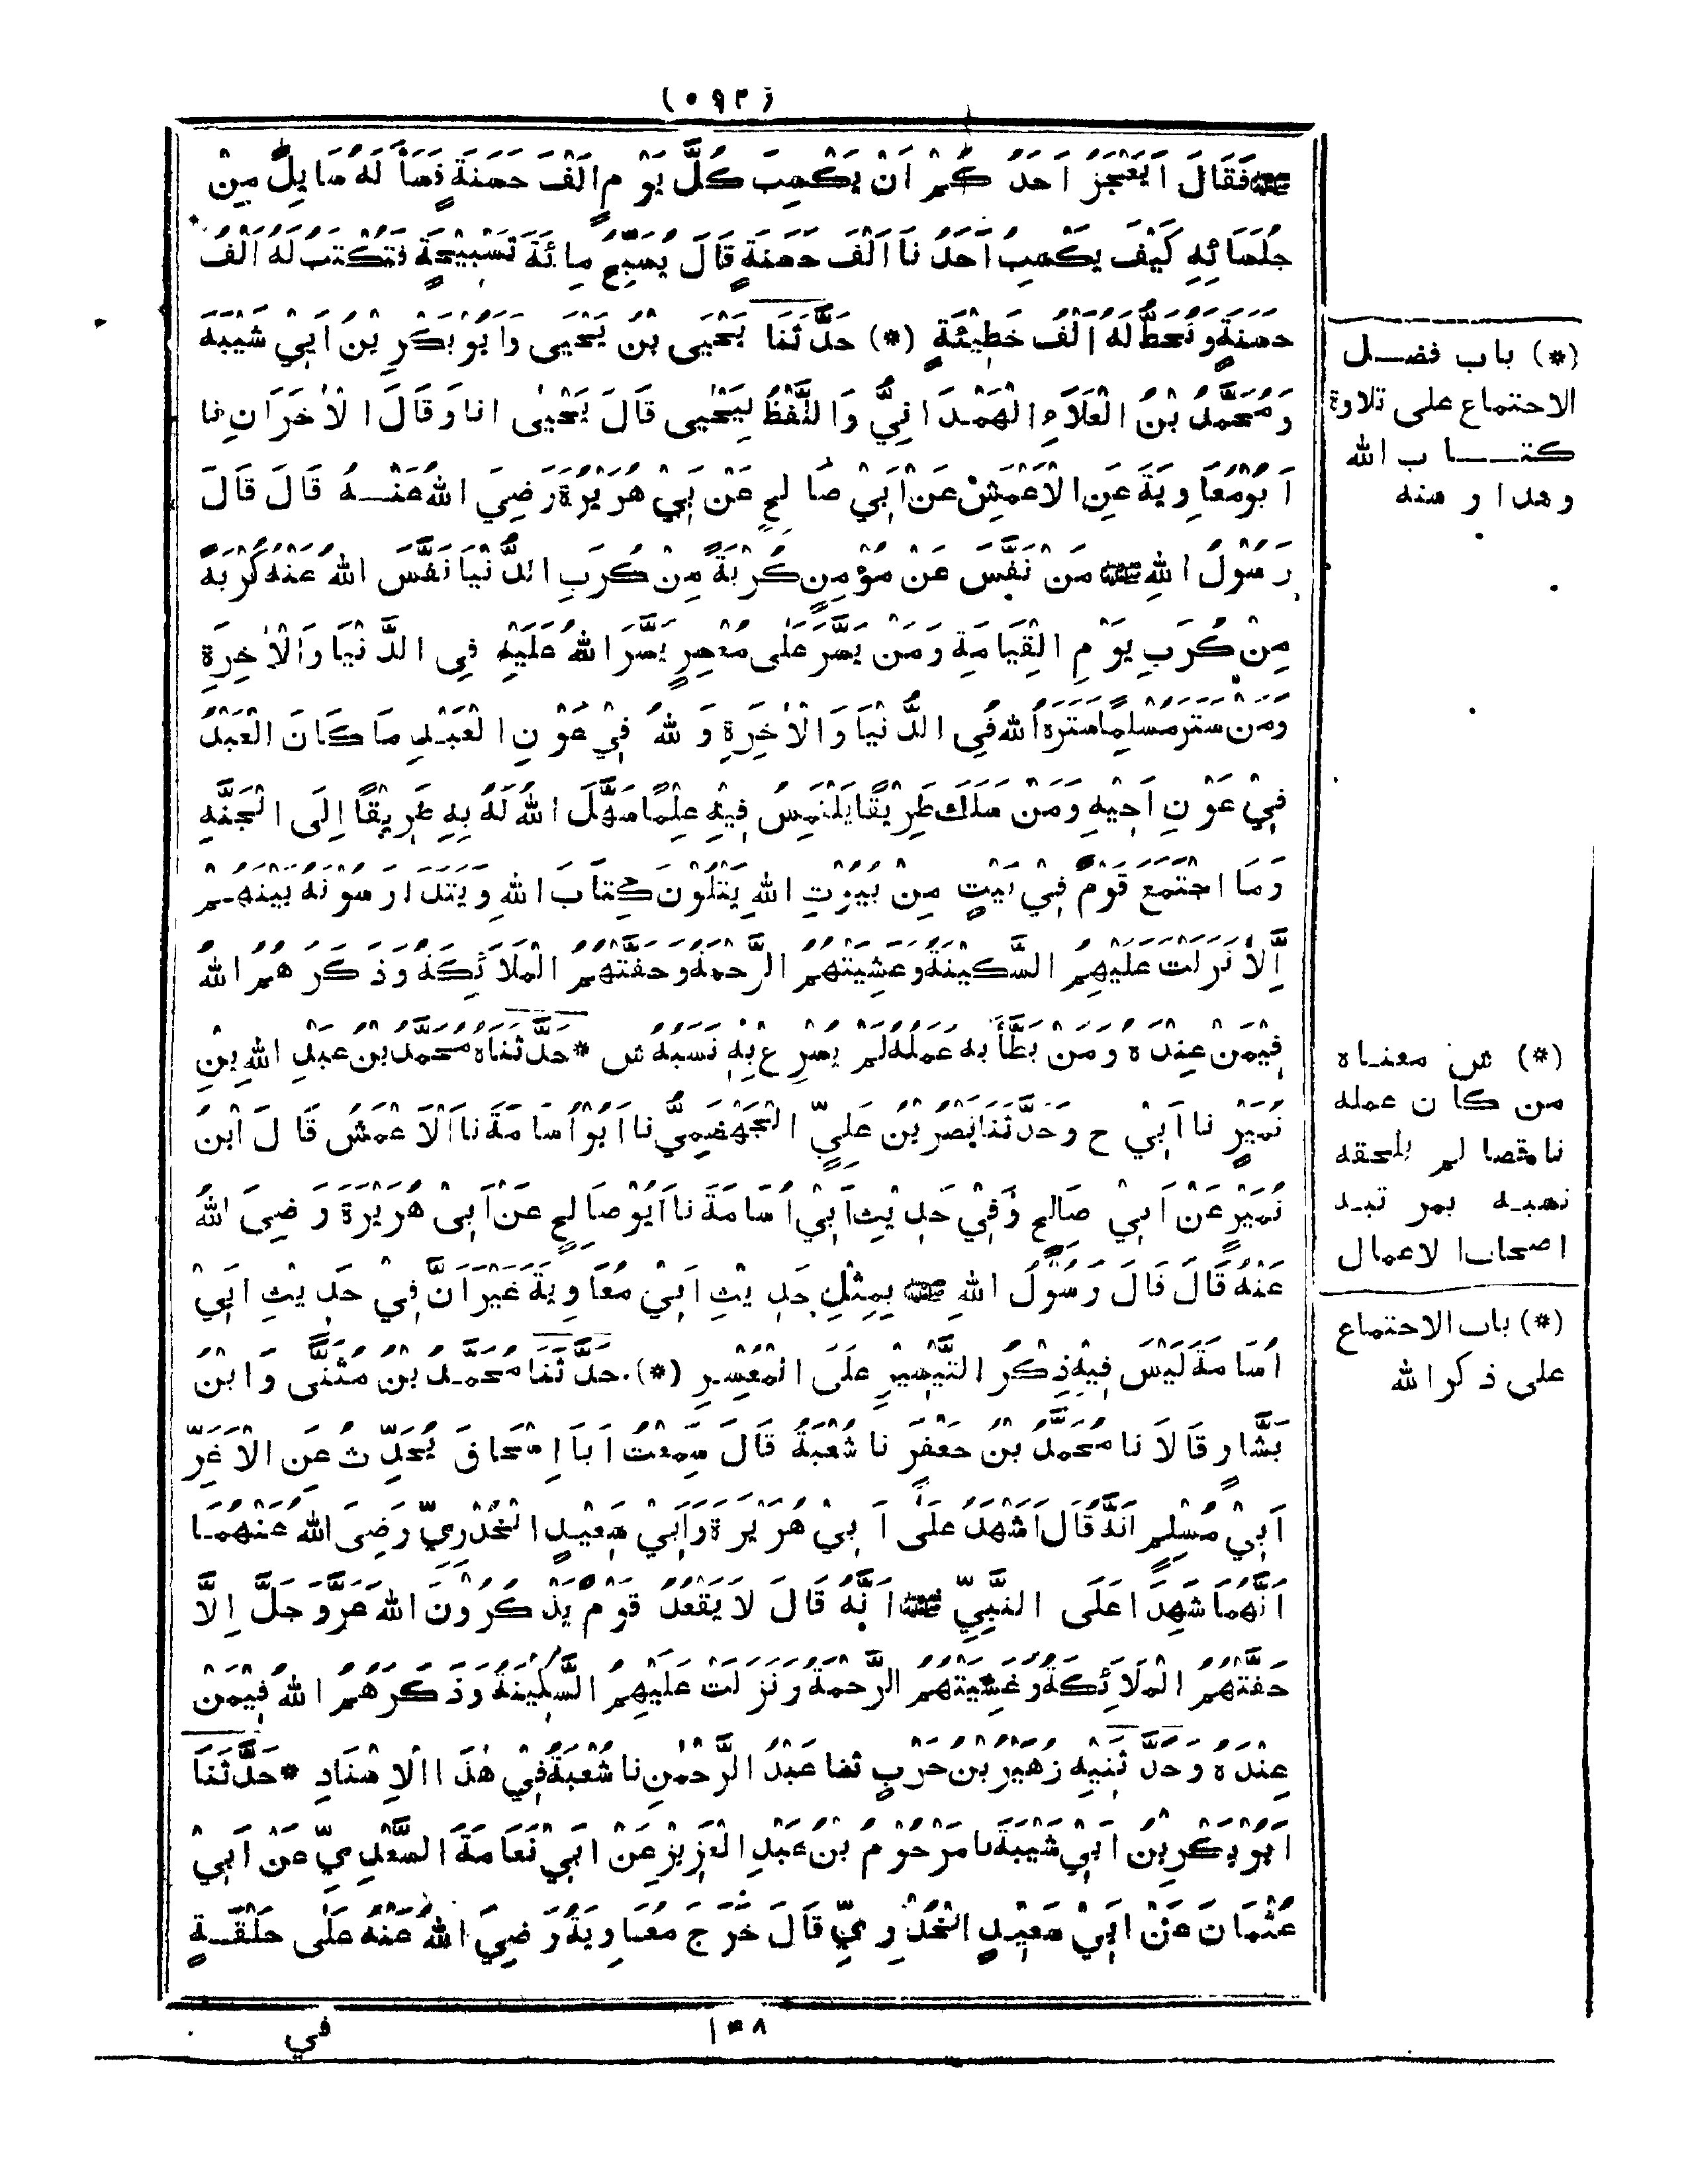 (٥٩٣)
ﷺ فَقَالَ اَيَعْجَزُ اَحَدُ كُمْ اَنْ يَكْسِبَ كُلَّ يَوْمٍ اَلْفَ حَسَنَةٍ فَسَأَ لَهُ سَايِلٌ مِنْ
جُلَسَائِهِ كَيْفَ يَكْسِبُ اَحَدُ نَا اَلْفَ حَسَنَةٍ قَالَ يُسَبِّحُ مِائَةَ تَسْبِيْحَةٍ فَتُكْتَبُ لَهُ اَلْفُ
حَسَنَةٍ وَتُحَطُّ لَهُ اَلْفُ خَطِيْئَةٍ (*) حَدَّثَنَا يَحْيَى بْنُ يَحْيَى وَ اَبُو بَكْرِ بْنُ اَبِيْ شَيْبَةَ
وَ مُحَمَّدُ بْنُ الْعَلَاءِ الْهَمْدَ انِيُّ وَ اللَّفْظُ لِيَحْيٰى قَالَ يَحْيٰى انا وَ قَالَ الْاٰ خَرَانِ نا
اَ بُوْ مُعَاوِ يَةَ عَنِ الْاَعْمَشِ عَنْ اَبِيْ صَا لِحٍ عَنْ بِيْ هُرَيْرَةَ رَضِيَ اللهُ عَنْـهُ قَالَ قَالَ
رَ سُوْلُ اللهِ ﷺ مَنْ نَفَّسَ عَنْ مُؤْ مِنٍ كُرْ بَةً مِنْ كُرَبِ الدُّ نْيَا نَفَّسَ اللهُ عَنْهُ كُرْ بَةً
مِنْ كُرَبِ يَوْ مِ الْقِيَا مَةِ وَ مَنْ يَسَّرَ عَلٰى مُعْسِرٍ يَسَّرَ اللهُ عَلَيْهِ فِى الدُّ نْيَا وَ الْاٰ خِرَةِ
وَ مَنْ سَتَرَ مُسْلِمًا سَتَرَهُ اللهُ فِى الدُّ نْيَا وَ الْاٰ خِرَةِ وَ للهُ فِيْ عَوْ نِ الْعَبْدِ مَا كَانَ الْعَبْدُ
فِيْ عَوْ نِ اَخِيْهِ وَ مَنْ سَلَكَ طَرِيْقًا يَلْتَمِسُ فِيْهِ عِلْمًا سَهَّلَ اللهُ لَهُ بِهِ طَرِيْقًا اِلَى الْجَنَّةِ
وَ مَا اجْتَمَعَ قَوْمٌ فِيْ بَيْتٍ مِنْ بُيُوْتِ اللهِ يَتْلُوْنَ كِتَابَ اللهِ وَ يَتَدَ ارَ سُوْ نَهُ بَيْنَهُـمْ
اِلَّا نَزَ لَتْ عَلَيْهِمُ السَّكِيْنَةُ وَ غَشِيَتْهُمُ الرَّحْمَةُ وَ حَفَّتْهُمُ الْمَلَا ئِكَةُ وَ ذَ كَرَ هُمُ اللهُ
فِيْمَنْ عِنْدَ هُ وَ مَنْ بَطَّأَ بِهِ عَمَلُهُ لَمْ يُسْرِ عْ بِهِ نَسَبُهُ ش * حَدَّ ثَنَاهُ مُحَمَّدُ بْنُ عَبْدِ اللهِ بْنِ
نُمَيْرٍ نا اَ بِيْ ح وَ حَدَّ ثَنَا نَصْرُ بْنُ عَلِيٍّ الْجَهْضَمِيُّ نا اَ بُوْ اُسَا مَةَ نا اَلْاَ عْمَشُ قَا لَ ابْنُ
نُمَيْرٍ عَنْ اَ بِيْ صَالِحٍ وَ فِيْ حَدِ يْثِ اَ بِيْ اُ سَا مَةَ نا اَ بُوْ صَا لِحٍ عَنْ اَ بِىْ هُرَيْرَةَ رَ ضِيَ اللهُ
عَنْهُ قَالَ قَالَ رَ سُوْلُ اللهِ ﷺ بِمِثْلِ حَدِ يْثِ اَ بِيْ مُعَا وِ يَةَ غَيْرَ اَنَّ فِيْ حَدِ يْثِ اَبِيْ
اُسَا مَةَ لَيْسَ فِيْهِ ذِكْرُ التَّيْسِيْرِ عَلَى الْمُعْسِرِ (*) حَدَّ ثَنَا مُحَمَّدُ بْنُ مُثَنًّى وَ ابْنُ
بَشَّارٍ قَا لَا نا مُحَمَّدُ بْنُ جَعْفَرٍ نا شُعْبَةُ قَالَ سَمِعْتُ اَ بَا اِ سْحَاقَ يُحَدِّ ثُ عَنِ الْاَ غَرِّ
اَ بِيْ مُسْلِمٍ اَنَّهُ قَالَ اَشْهَدُ عَلٰى اَ بِيْ هُرَ يْرَ ةَ وَ اَبِيْ سَعِيْدٍ الْخُدْرِيِّ رَضِىَ اللهُ عَنْهُمَـا
اَ نَّهُمَا شَهِدَ ا عَلَى النَّبِيِّ ﷺ اَ نَّهُ قَالَ لَا يَقْعُدُ قَوْ مٌ يَذْ كُرُ وْنَ اللهَ عَزَّ وَ جَلَّ اِلَّا
حَفَّتْهُمُ الْمَلَا ئِكَةُ وَ غَشِيَتْهُمُ الرَّحْمَةُ وَ نَزَ لَتْ عَلَيْهِمُ السَّكِيْنَةُ وَ ذَ كَرَهُمُ اللهُ فِيْمَنْ
عِنْدَ هُ وَ حَدَّ ثَنِيْهِ زُ هَيْرُ بْنُ حَرْبٍ ثنا عَبْدُ الرَّحْمٰنِ نا شُعْبَةُ فِيْ هٰذَ ا الْاِ سْنَادِ * حَدَّ ثَنَا
اَ بُوْ بَكْرِ بْنُ اَ بِيْ شَيْبَةَ نا مَرْ حُوْ مُ بْنُ عَبْدِ الْعَزِ يْزِ عَنْ اَ بِيْ نَعَا مَةَ السَّعْدِ يِّ عَنْ اَ بِيْ
عُثْمَا نَ عَنْ اَ بِيْ سَعِيْدٍ الْخُدْ رِ يِّ قَالَ خَرَ جَ مُعَاوِ يَةُ رَ ضِيَ اللهُ عَنْهُ عَلٰى حَلْقَـةٍ
١٤٨
في
(*) باب فضـل
الاجتماع على تلاوة
كتــــا ب الله
و مدا ر سته
(*) ش معنـاه
من كا ن عمله
نا قصا لم يلحقه
نسبـه بمر تبـة
اصحاب الا عمال
(*) باب الاجتماع
على ذ كر الله